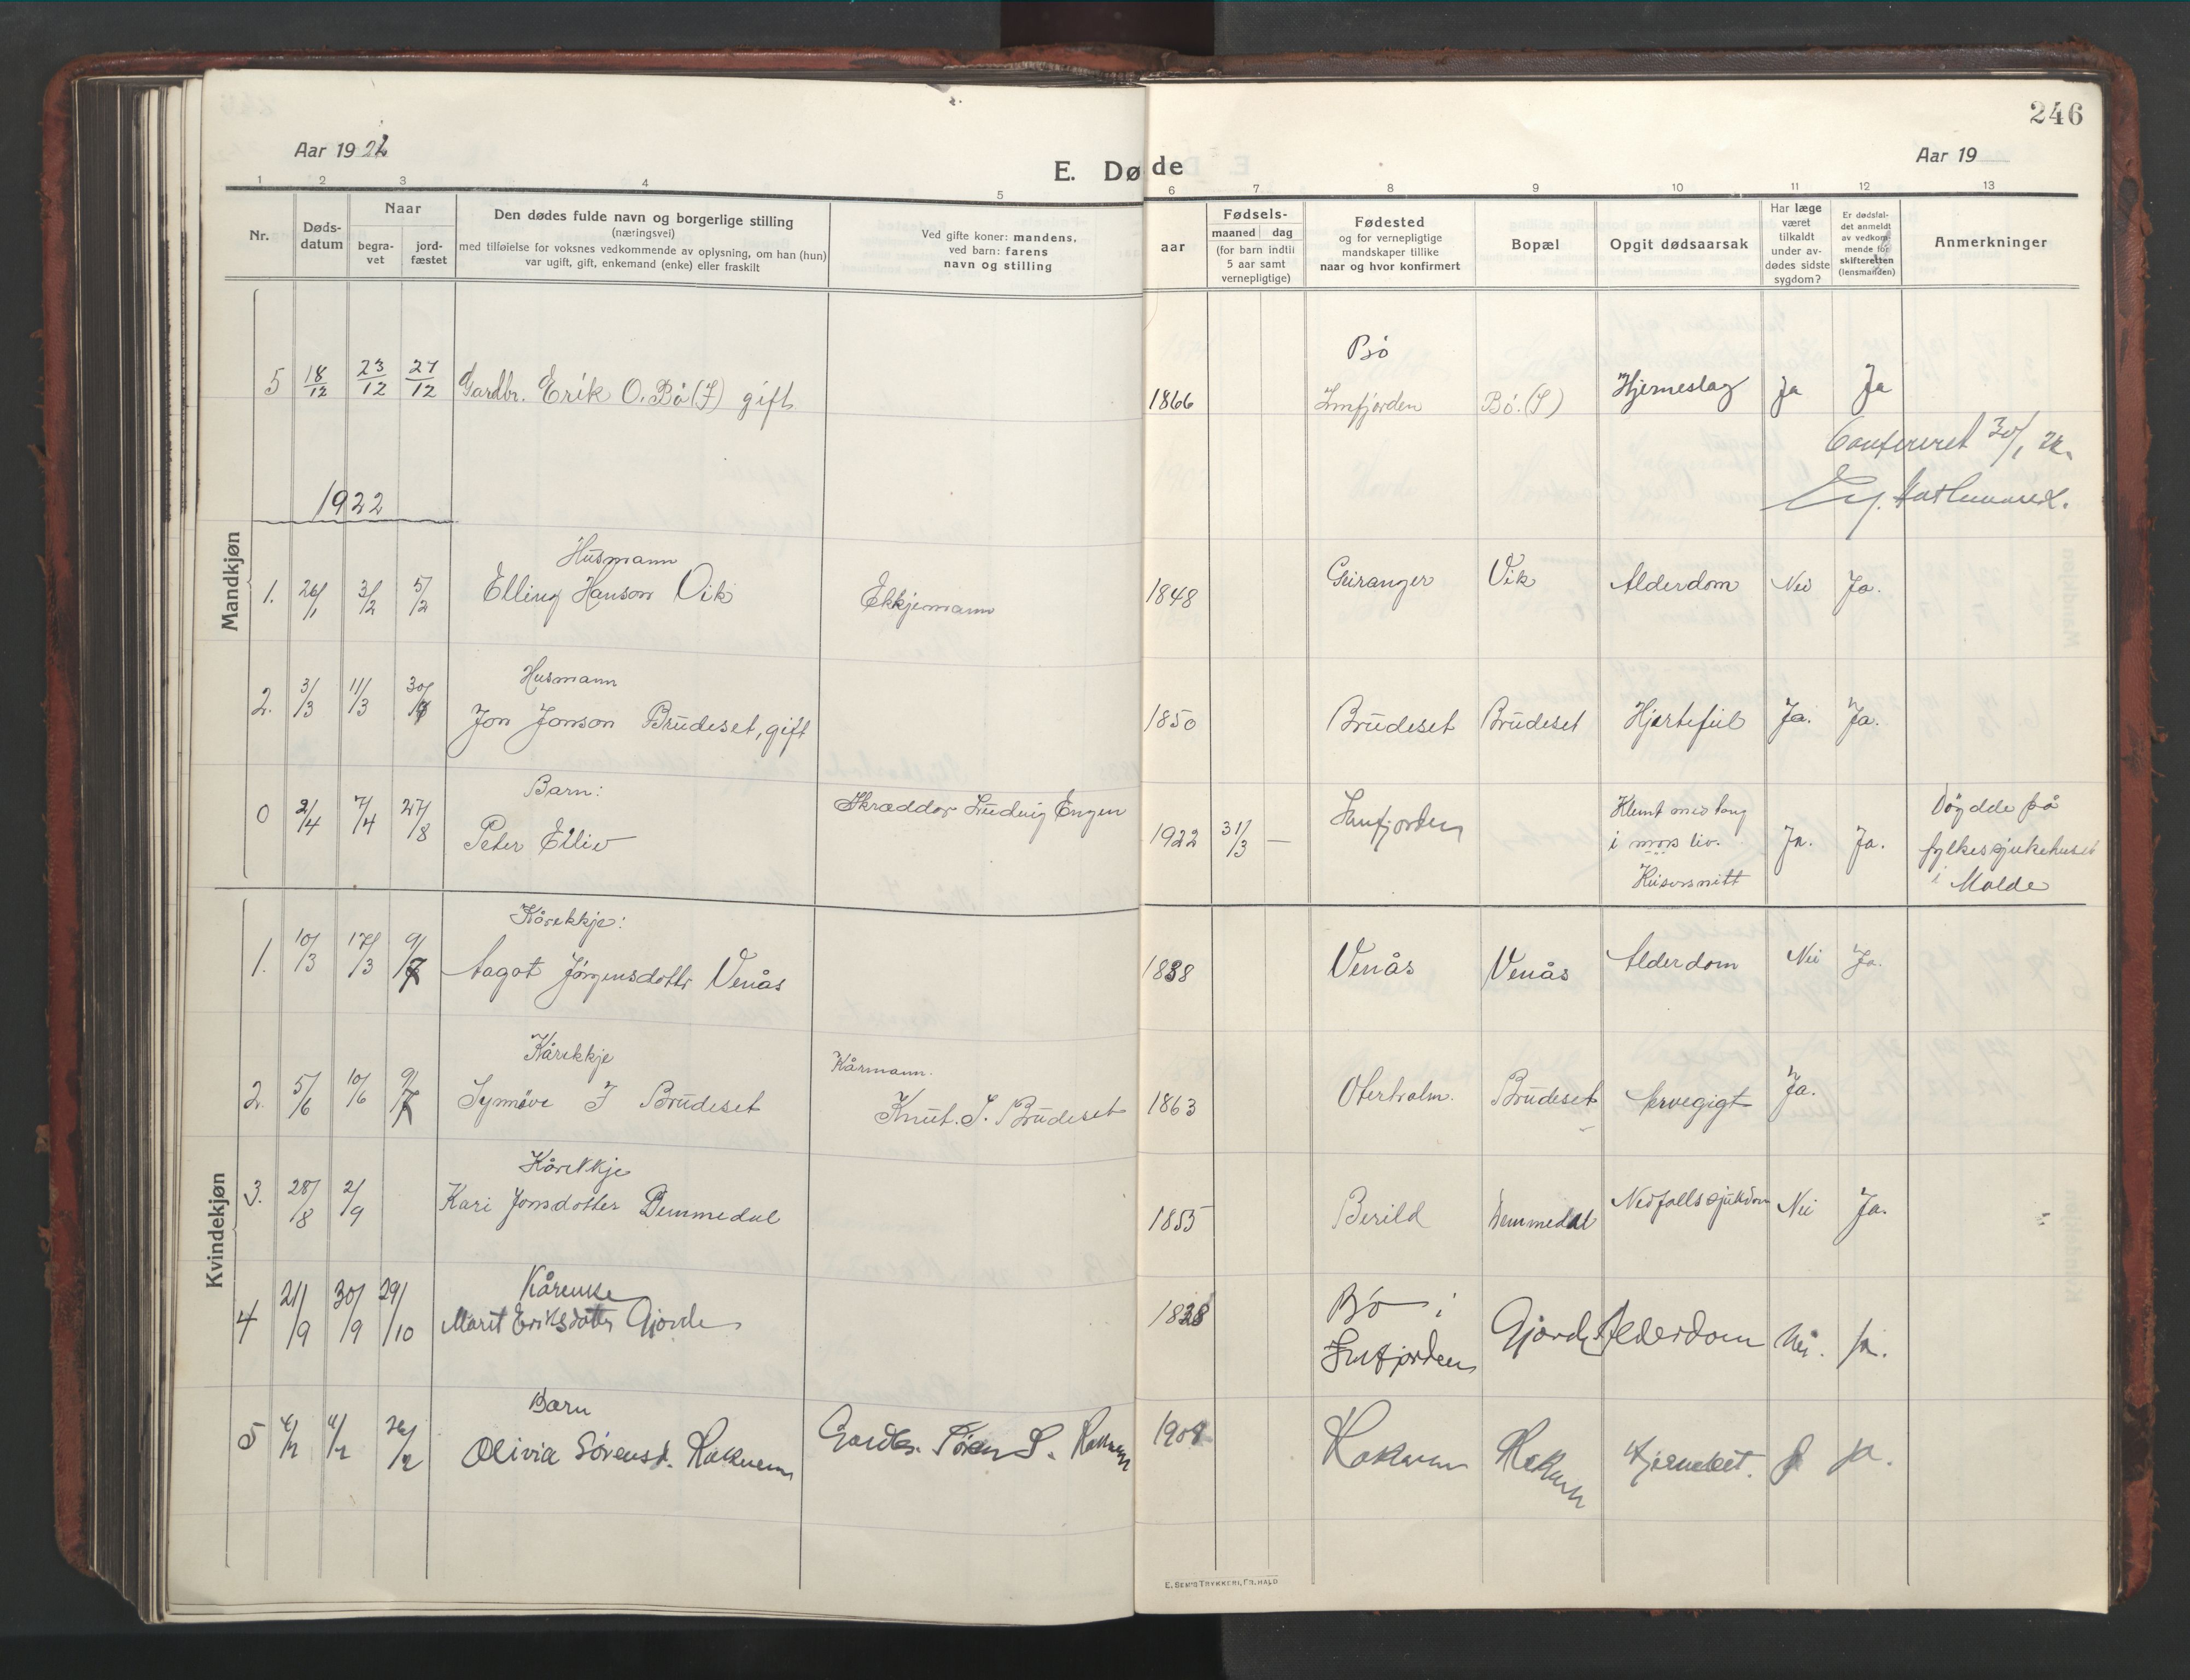 246
Aar 1922
Aar 19
E. Døde
1 2 3 4 5 6 7 8 9 10 11 12 13
Nr.
Døds-
datum
Naar
begra-
vet
jord-
fæstet
Den dødes fulde navn og borgerlige stilling
(næringsvei)
med tilføielse for voksnes vedkommende av oplysning, om han (hun)
var ugift, gift, enkemand (enke) eller fraskilt
Ved gifte koner: mandens,
ved barn: farens
navn og stilling
aar
Fødsels-
maaned dag
(for barn indtil
5 aar samt
vernepligtige)
Fødested
og for vernepligtige
mandskaper tillike
naar og hvor konfirmert
Bopæl
Opgit dødsaarsak
Har læge
været
tilkaldt
under av-
dødes sidste
sygdom?
Er dødsfal-
det anmeldt
av vedkom-
mende for
skifteretten
(lensmanden)
Anmerkninger
Mandkjøn
Bö
5 18/12 23/12 27/12 Gardbr. Erik O. Bö (I) gift 1866 Innfjorden Bö. (I) Hjerneslag Ja Ja
Confereret 30/1 22.
1922
Husmann
1. 26/1 3/2 5/2 Elling Hanson Vik Ekkjemann 1848 Geiranger Vik Alderdom Nei Ja.
Husmann
2. 3/3 11/3 30/4 Jon Jonson Brudeset, gift 1850 Brudeset Brudeset Hjartefeil Ja. Ja.
Barn:
0 2/4 7/4 27/8 Peter Elliv Skræddar Ludvig Engen 1922 31/3 — Innfjorden
Klemt med tong
i mors liv.
Keisersnitt
Ja. Ja.
Döydde på
fylkessjukehuset
i Molde
Kvindekjøn
Kårekkje:
1. 10/3 17/3 9/7 Aagot Jörgensdotter Venås 1838 Venås Venås Alderdom Nei Ja.
Kårekkje
Kårmann.
2. 5/6 10/6 9/7 Synnöve I Brudeset Knut. S. Brudeset 1863 Oterholm. Brudeset Arvegigt Ja.
Kårekkje
3. 28/8 2/9 Kari Jonsdotter Demmedal 1855 Berild Demmedal Nedfallssjukdom Nei Ja.
Kårenke
4 21/9 30/9 29/10 Marit Eriksdotter Gjorde 1838 Bö i
Innfjorden
Gjorde Alderdom Nei. Ja.
Barn
5 Olivia Sörensd. Kokvem Gardbr. Sören S. Kokvem 1908 Kokvem Kokvem Ja.
E. SEM'S TRYKKERI, FR.HALD